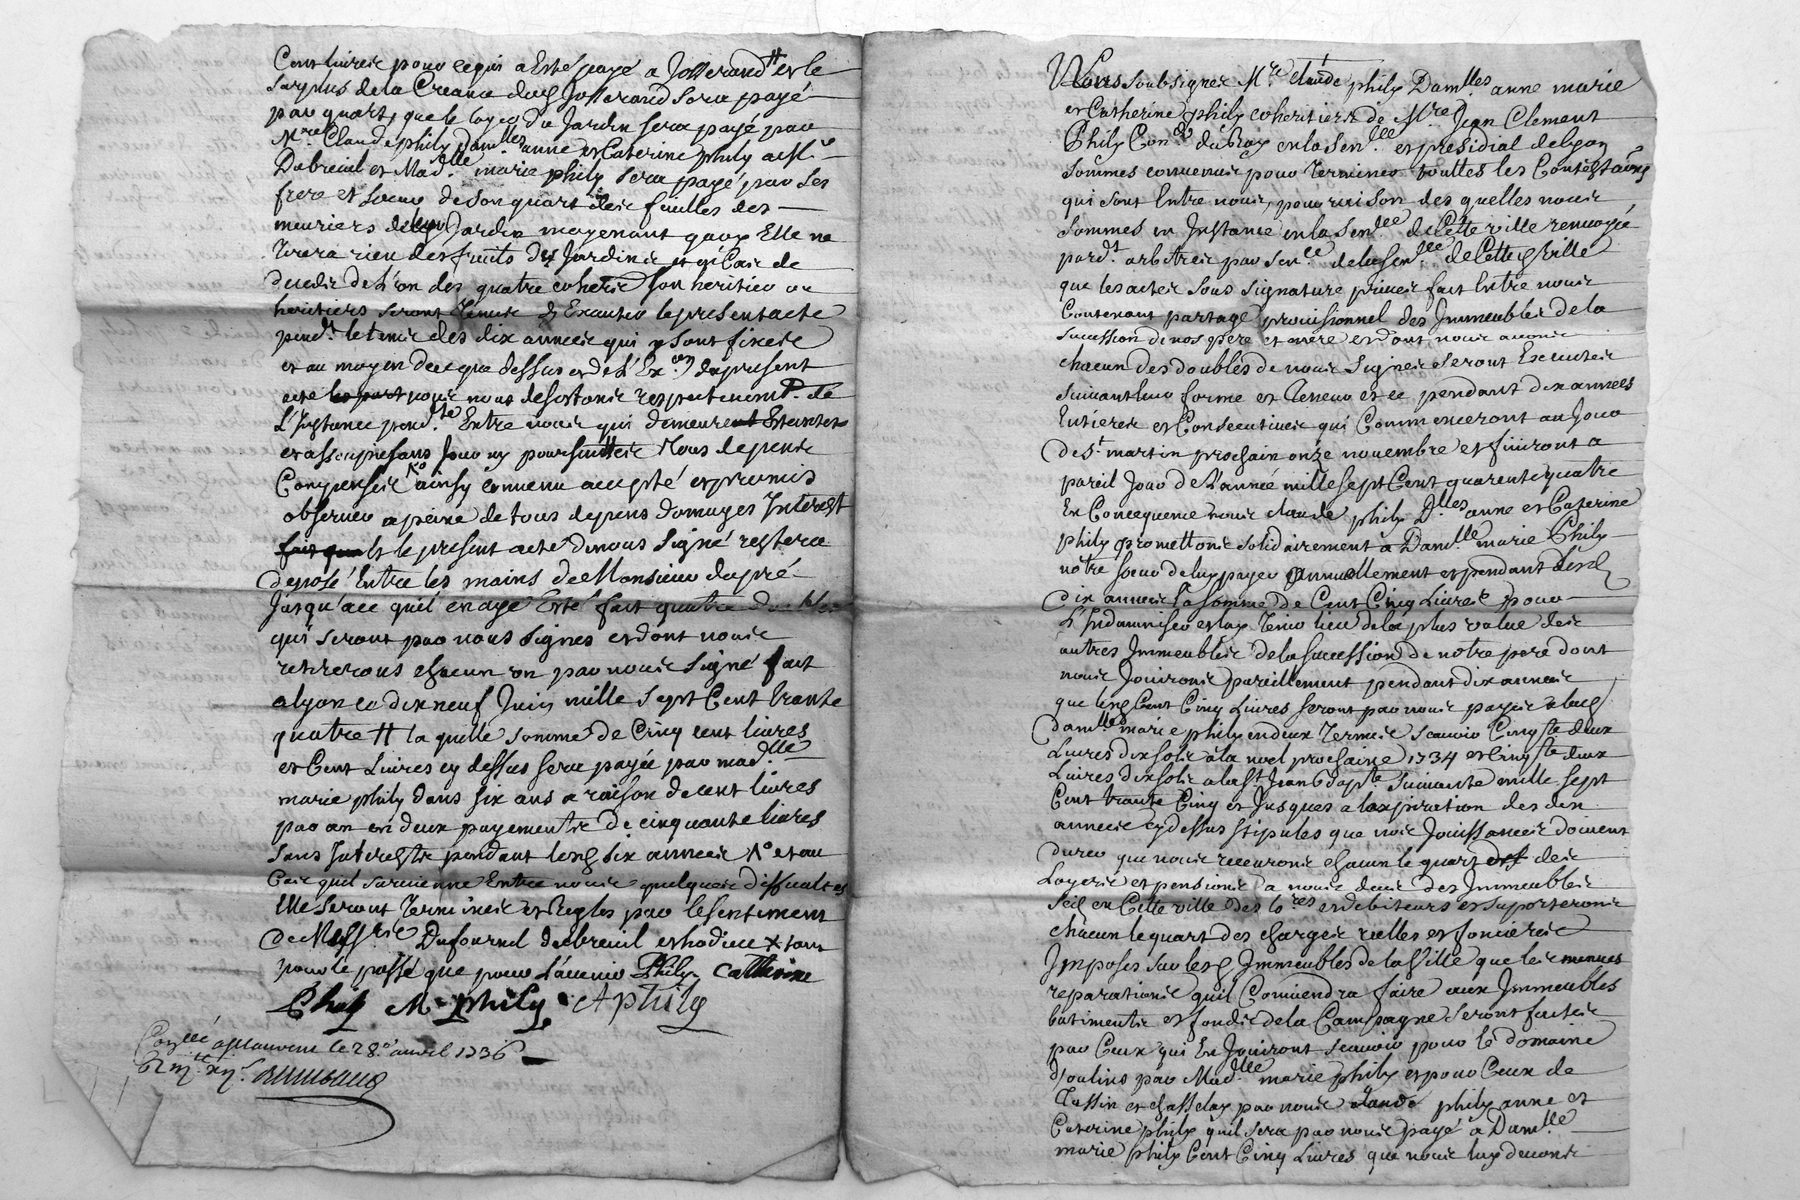 Cent livres pour ce qui a esté payé a Josserand # et le
surplus de la Creance dud Josserand sera payé
par quart, que le loyer du Jardin sera payé par
Mre Claude phily Damlles anne et Caterine phily a Mr
Dubreuil et Madlle marie phily sera payé par ses
frere et soeur de son quart des feuilles des
meuriers dud Jardin moyenant quoy Elle ne
Tirera rien des fruits dud Jardin et en Cas de
decedz de L'un des quatre coherit son heritier ou
heritiers seront Tenus d'Executer le present acte
pendt le tems des dix années qui y sont fixées
et au moyen de ce que dessus et de L'Exon du present
acte nous nous desistons respectivemt de
L'Instance pendte Entre nous qui demeure Eteinte
et assoupie sans pouvoir y poursuivre Tous depens
Compensés ainsy convenu accepté et promis
observer a peine de tous depens domages Interest
et le present acte de nous signé restera
deposé Entre les mains de Monsieur dupré
Jusqu'a ce qu'il en aye Esté fait quatre doubles
qui seront par nous signes et dont nous
retirerons chacun un par nous signé fait
a lyon ce dix neuf Juin mille sept Cent trente
quatre # la quelle somme de Cinq cent livres
et Cent Livres cy dessus sera payée par madlle
marie phily dans six ans a raison de cent livres
par an en deux payements de cinquante livres
sans Interests pendant lesd six années et au
Cas quil survienne Entre nous quelques difficultes
Elle seront Terminées et Regles par le sentiment
de Messrs Dufournel dubreuil et hodieu x tant
pour le passé que pour l'avenir Phily Catherine
Phily M. phily. A phily
Conllé a Sauveur le 28e avril 1736
Nous soubsignes Mre Claude phily Damlles anne marie
et Catherine phily coheritiers de Mre Jean Clement
Phily Coner du Roy en la Senlee et presidial de lyon
sommes convenus pour Terminer touttes les Contestaons
qui sont Entre nous, pour raison des quelles nous
sommes en Instance en la Senlee de Cette ville renvoyée
pardt arbitres par Sence de la Senlee de Cette Ville
que les actes sous signature privée fait Entre nous
Contenant partage provisionnel des Immeubles de la
succession de nos pere et mere et dont nous avons
chacun des doubles de nous signés seront Executés
suivant leur forme et Teneur et ce pendant dix années
Entieres et Consecutives qui Commenceront au Jour
de St martin prochain onze novembre et finiront a
pareil Jour de L'année mille sept Cent quarente quatre
En Consequence nous claude phily Dlles anne et Caterine
phily promettons solidairement a Damlle marie Phily
nôtre soeur de luy payer annuellement et pendant lesd
dix années la somme de Cent Cinq Livres pour
L'Indamniser et luy Tenir lieu de la plus value des
autres Immeubles de la succession de notre pere dont
nous Jouirons pareillement pendant dix années
que lesd Cent Cinq Livres seront par nous payés a lad
damlle marie phily en deux Termes scavoir Cinqte deux
Livres dix sols a la noel prochaine 1734 et Cinqte deux
Livres dix sols a la St Jean Bapte suivante mille sept
Cent trante Cinq et Jusques a l'expiration des dix
années cy dessus stipules que nos Jouissances doivent
durer que nous recevrons chacun le quart des
Loyers et pensions a nous deus des Immeubles
scis en Cette ville des lores et debiteurs et suporterons
chacun le quart des charges reelles et foncieres
Imposes sur lesd Immeubles de la Ville que les menues
reparations quil Conviendra faire aux Immeubles
bâtiments et fonds de la Campagne seront faites
par Ceux qui En Jouiront scavoir pour le domaine
d'oulins par Madlle marie phily et pour Ceux de
Tassin et chasselay par nous claude phily anne et
Caterine phily quil sera par nous payé a Damlle
marie phily Cent Cinq Livres que nous luy devons